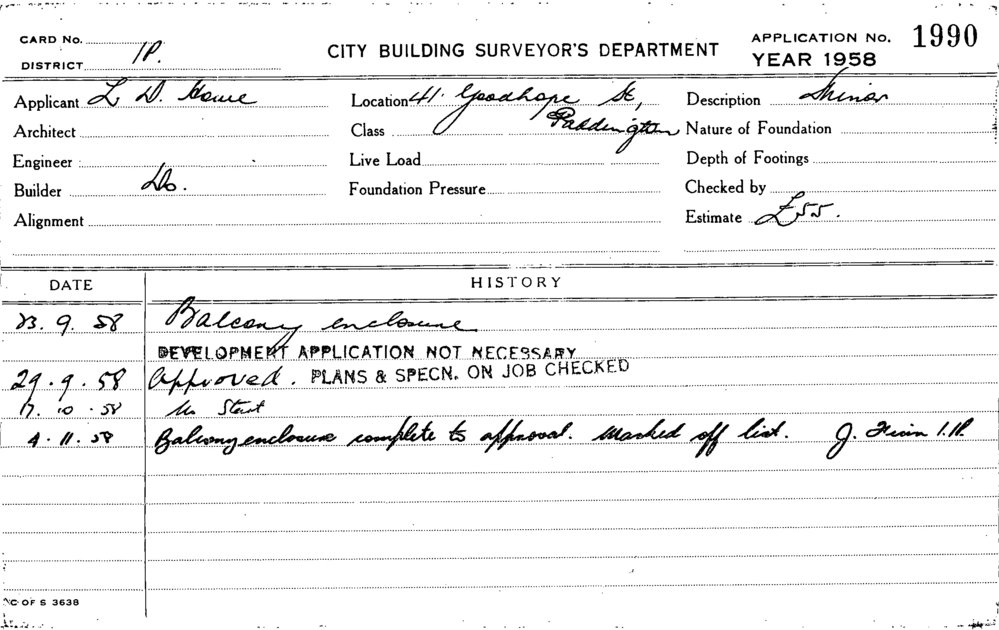 CARD No.
DISTRICT 1P.
CITY BUILDING SURVEYOR'S DEPARTMENT
APPLICATION No. 1990
YEAR 1958
Applicant L D. Howe
Location 41. Goodhope St, Paddington
Description Minor
Architect
Class
Nature of Foundation
Engineer
Live Load
Depth of Footings
Builder Do.
Foundation Pressure
Checked by
Alignment
Estimate £55.
DATE
HISTORY
23. 9. 58 Balcony enclosure
DEVELOPMENT APPLICATION NOT NECESSARY
29. 9. 58 Approved. PLANS & SPECN. ON JOB CHECKED
17. 10. 58 No Start
4. 11. 58 Balcony enclosure complete to approval. Marked off list. J. 1.P.
C OF S 3638